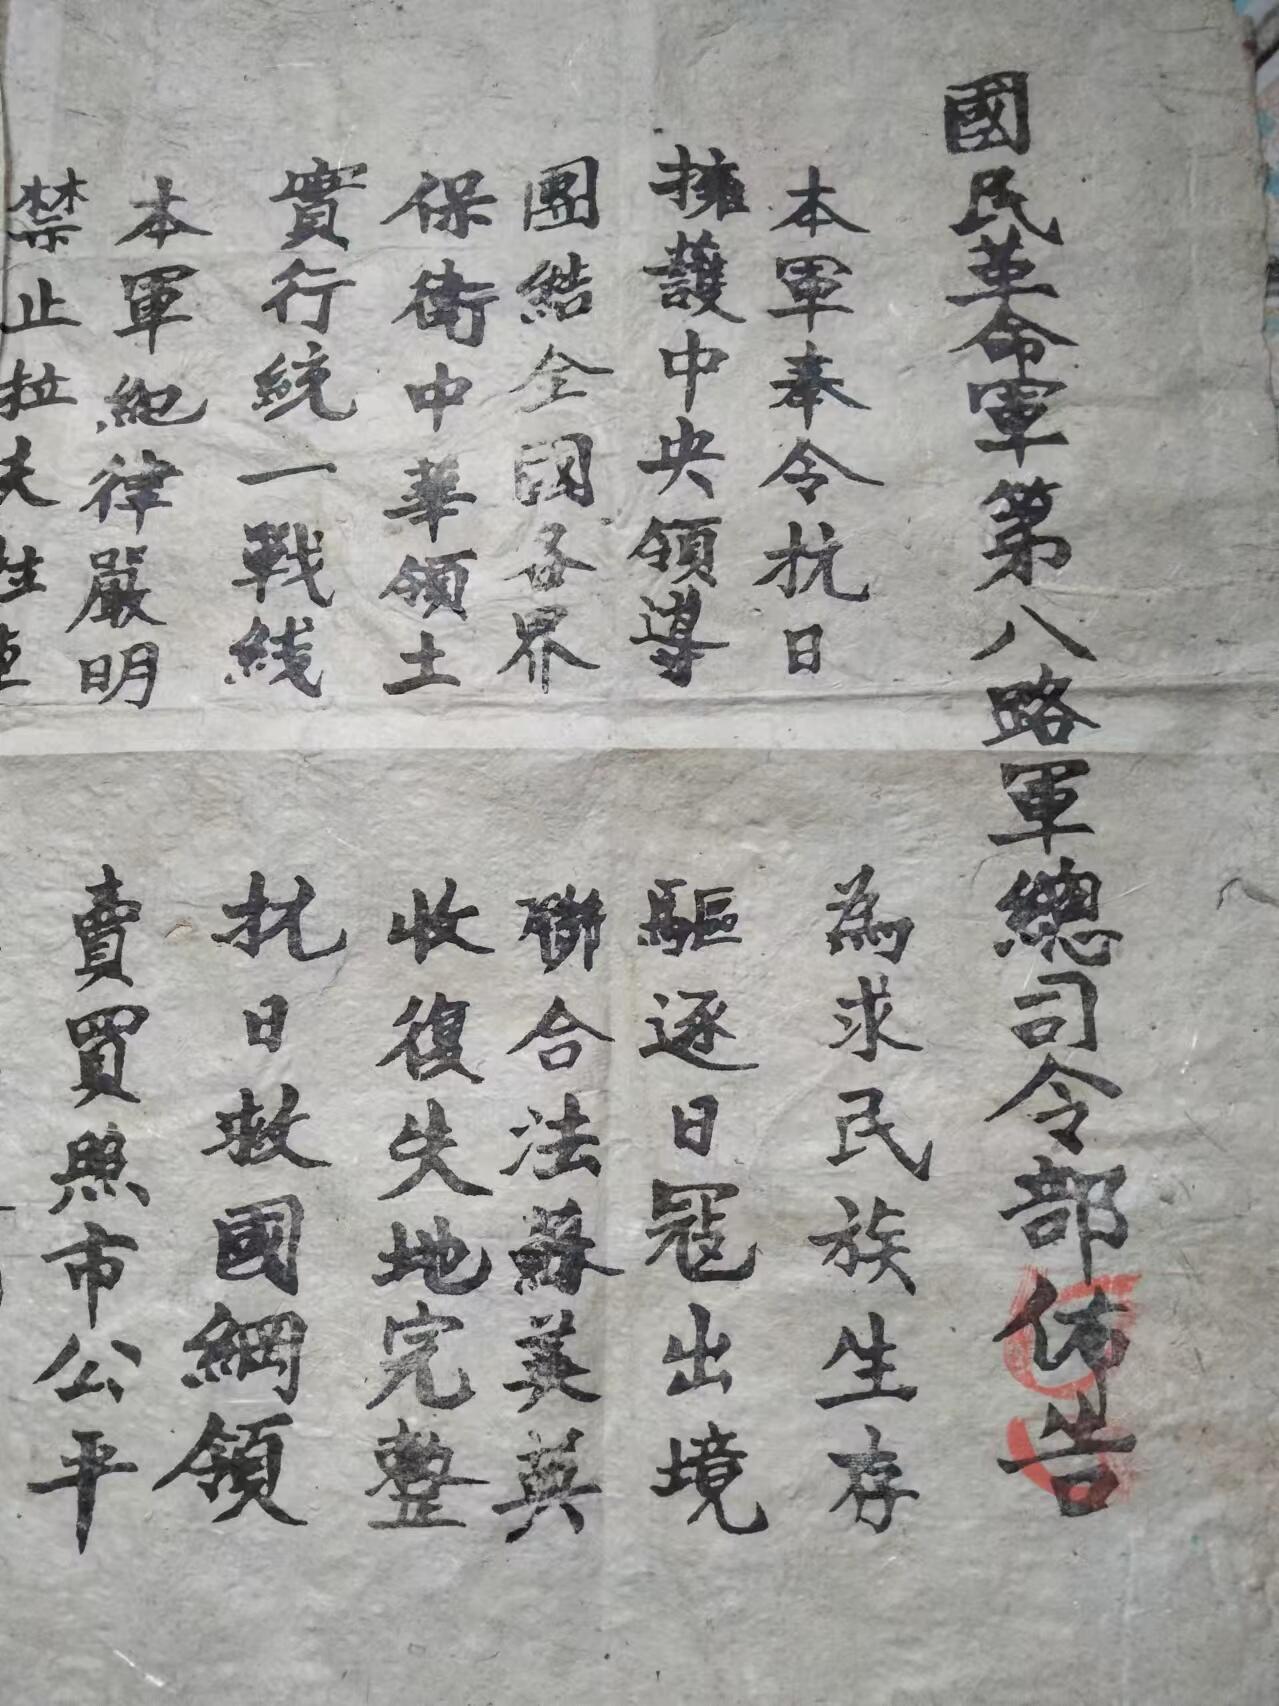 國民革命軍第八路軍總司令部佈告
本軍奉令抗日 為求民族生存
擁護中央領導 驅逐日寇出境
團結全國各界 聯合法蘇美英
保衛中華領土 收復失地完整
實行統一戰綫 抗日救國綱領
本軍紀律嚴明 賣買照市公平
禁止拉夫牲